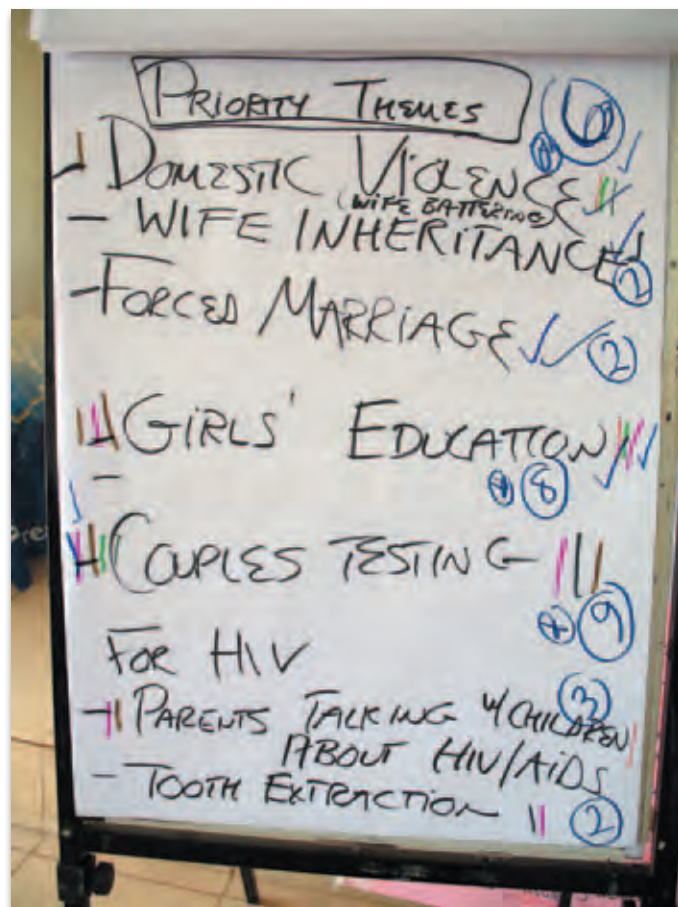 PRIORITY THEMES
6
- DOMESTIC VIOLENCE
(WIFE BATTERING)
- WIFE INHERITANCE
2
- FORCED MARRIAGE 2
GIRLS' EDUCATION
- 8
COUPLES TESTING
9
FOR HIV
3
- PARENTS TALKING W/ CHILDREN
ABOUT HIV/AIDS
- TOOTH EXTRACTION 2